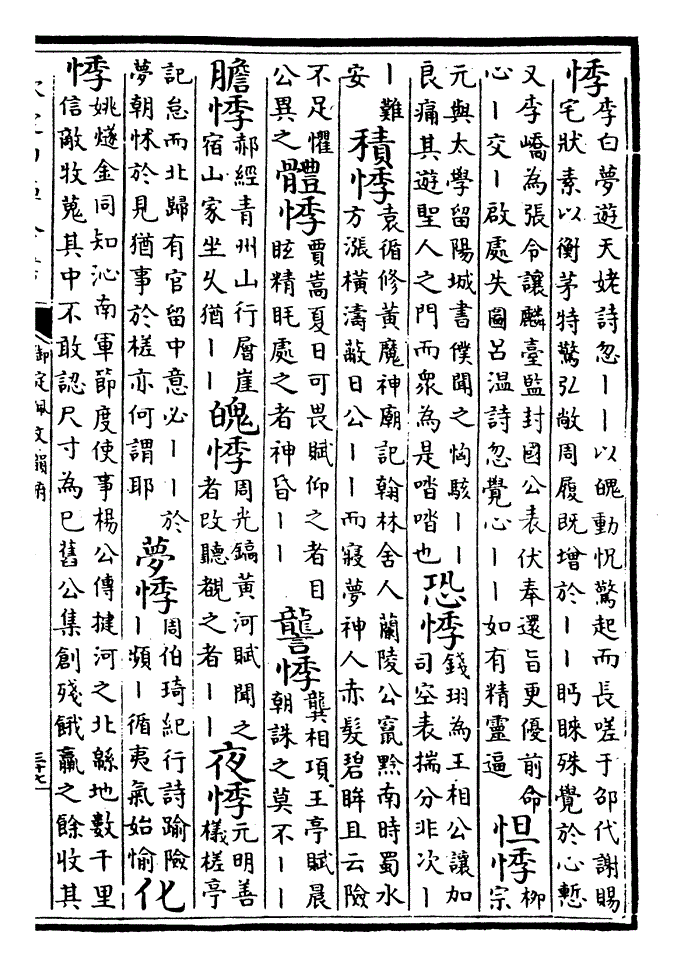 悸
李白夢遊天姥詩忽丨丨以魄動怳驚起而長嗟于邵代謝賜
宅狀素以衡茅特驚弘敞周履既增於丨丨眄睞殊覺於心慙
又李嶠為張令讓麟臺監封國公表伏奉還旨更優前命
心丨交丨啟處失圖呂溫詩忽覺心丨丨如有精靈逼
怛悸
柳
宗
元與太學留陽城書僕聞之恟駭丨丨
良痛其遊聖人之門而衆為是也
恐悸
錢珝為王相公讓加
司空表揣分非次丨
丨難
安
積悸
袁循修黃魔神廟記翰林舍人蘭陵公竄黔南時蜀水
方漲橫濤蔽日公丨丨而寢夢神人赤髮碧眸且云險
不足懼
公異之
體悸
賈嵩夏日可畏賦仰之者目
眩精眊處之者神昏丨丨
讋悸
龔相項王亭賦晨
朝誅之莫不丨丨
膽悸
郝經青州山行層崖
宿山家坐久猶丨丨
魄悸
周光鎬黃河賦聞之
者改聽覩之者丨丨
夜悸
元明善
檥槎亭
記怠而北歸有官留中意必丨丨於
夢朝怵於見猶事於槎亦何謂耶
夢悸
周伯琦紀行詩踰險
丨頻丨循夷氣始愉
化
悸
姚燧金同知沁南軍節度使事楊公傳揵河之北緜地數千里
信敵牧蒐其中不敢認尺寸為已舊公集創殘餓羸之餘收其
御定佩文韻府